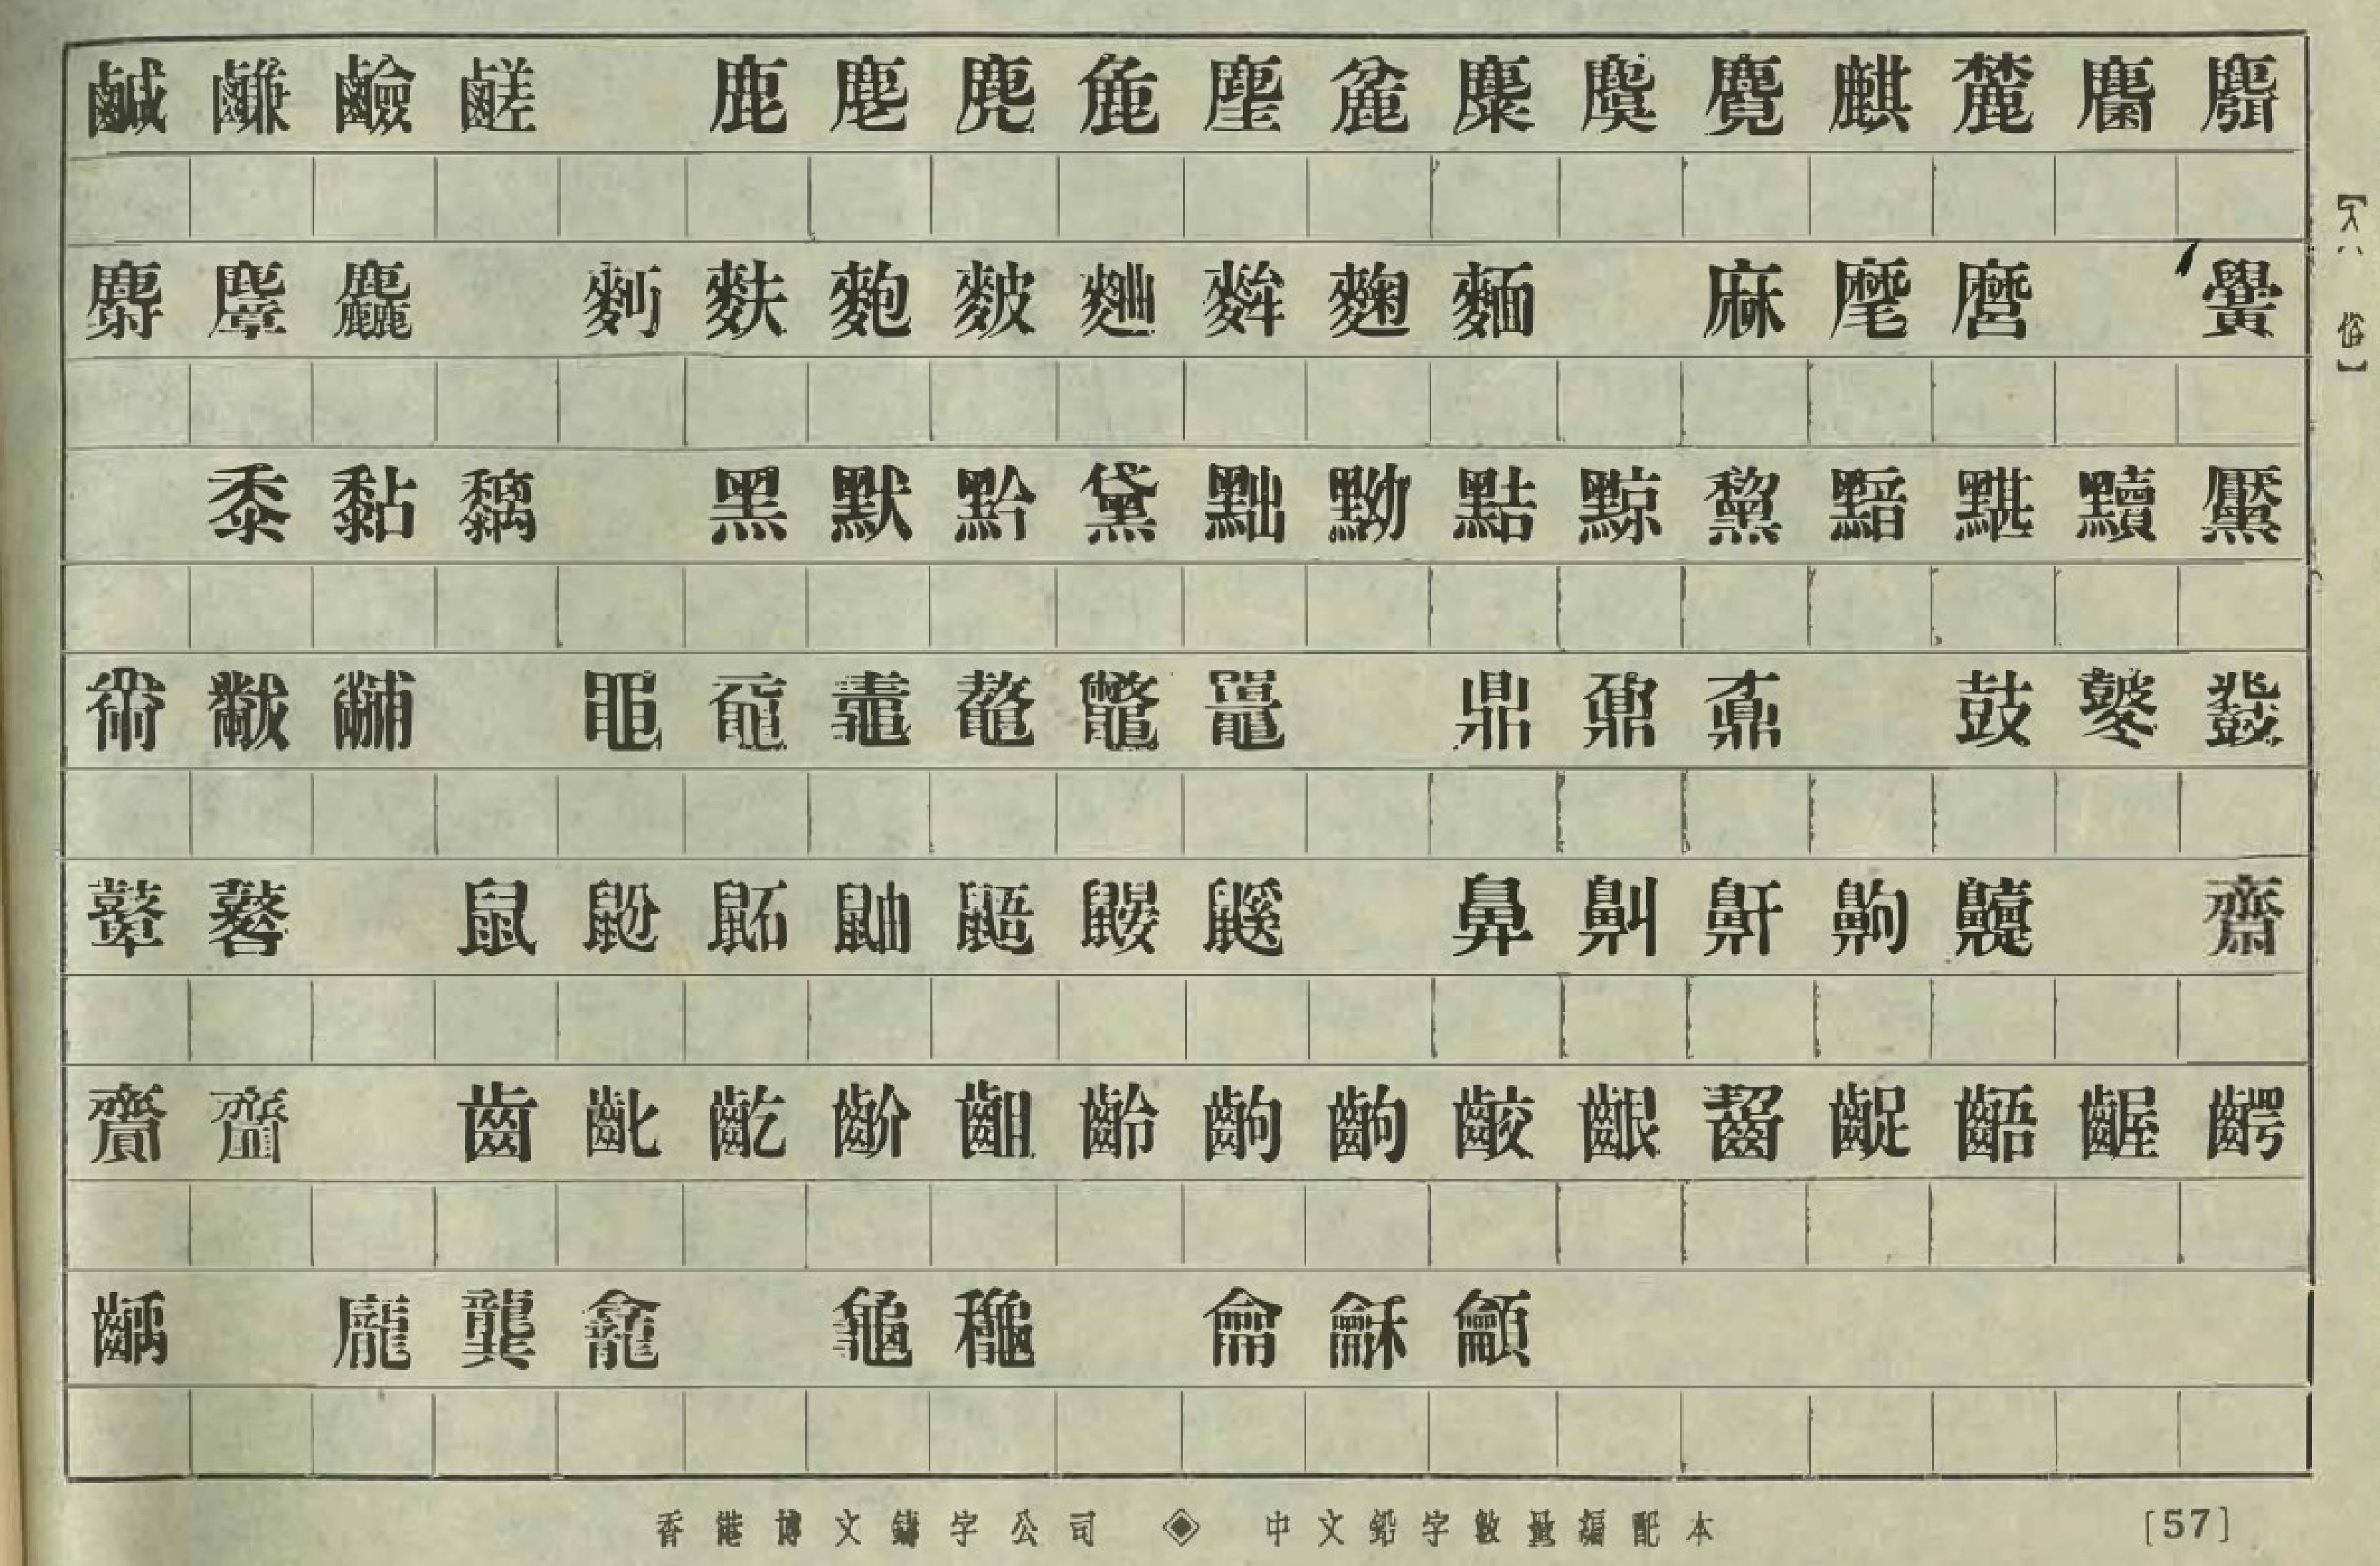 鹹 鹻 鹼 鹺 鹿 麀 麂 麁 麈 麄 麋 麌 麑 麒 麓 麕 麛
麝 麞 麤 麪 麩 麭 麯 麰 麴 麵 麻 麾 麿 黌
黍 黏 黐 黑 默 黔 黛 黜 黝 點 黥 黧 黯 黷 黶
黹 黻 黼 黽 黿 鼀 鼇 鼈 鼉 鼎 鼐 鼒 鼓 鼕 鼗
鼙 鼛 鼠 鼢 鼫 鼬 鼯 鼴 鼷 鼻 鼼 鼾 齁 齊
齎 齏 齒 齔 齕 齘 齟 齡 齣 齩 齦 齧 齪 齬 齷 齶
齲 龐 龔 龕 龜 龝 龠 龢 龥
【欠八 俗】
香港博文鑄字公司 ◈ 中文鉛字數量編配本 [57]